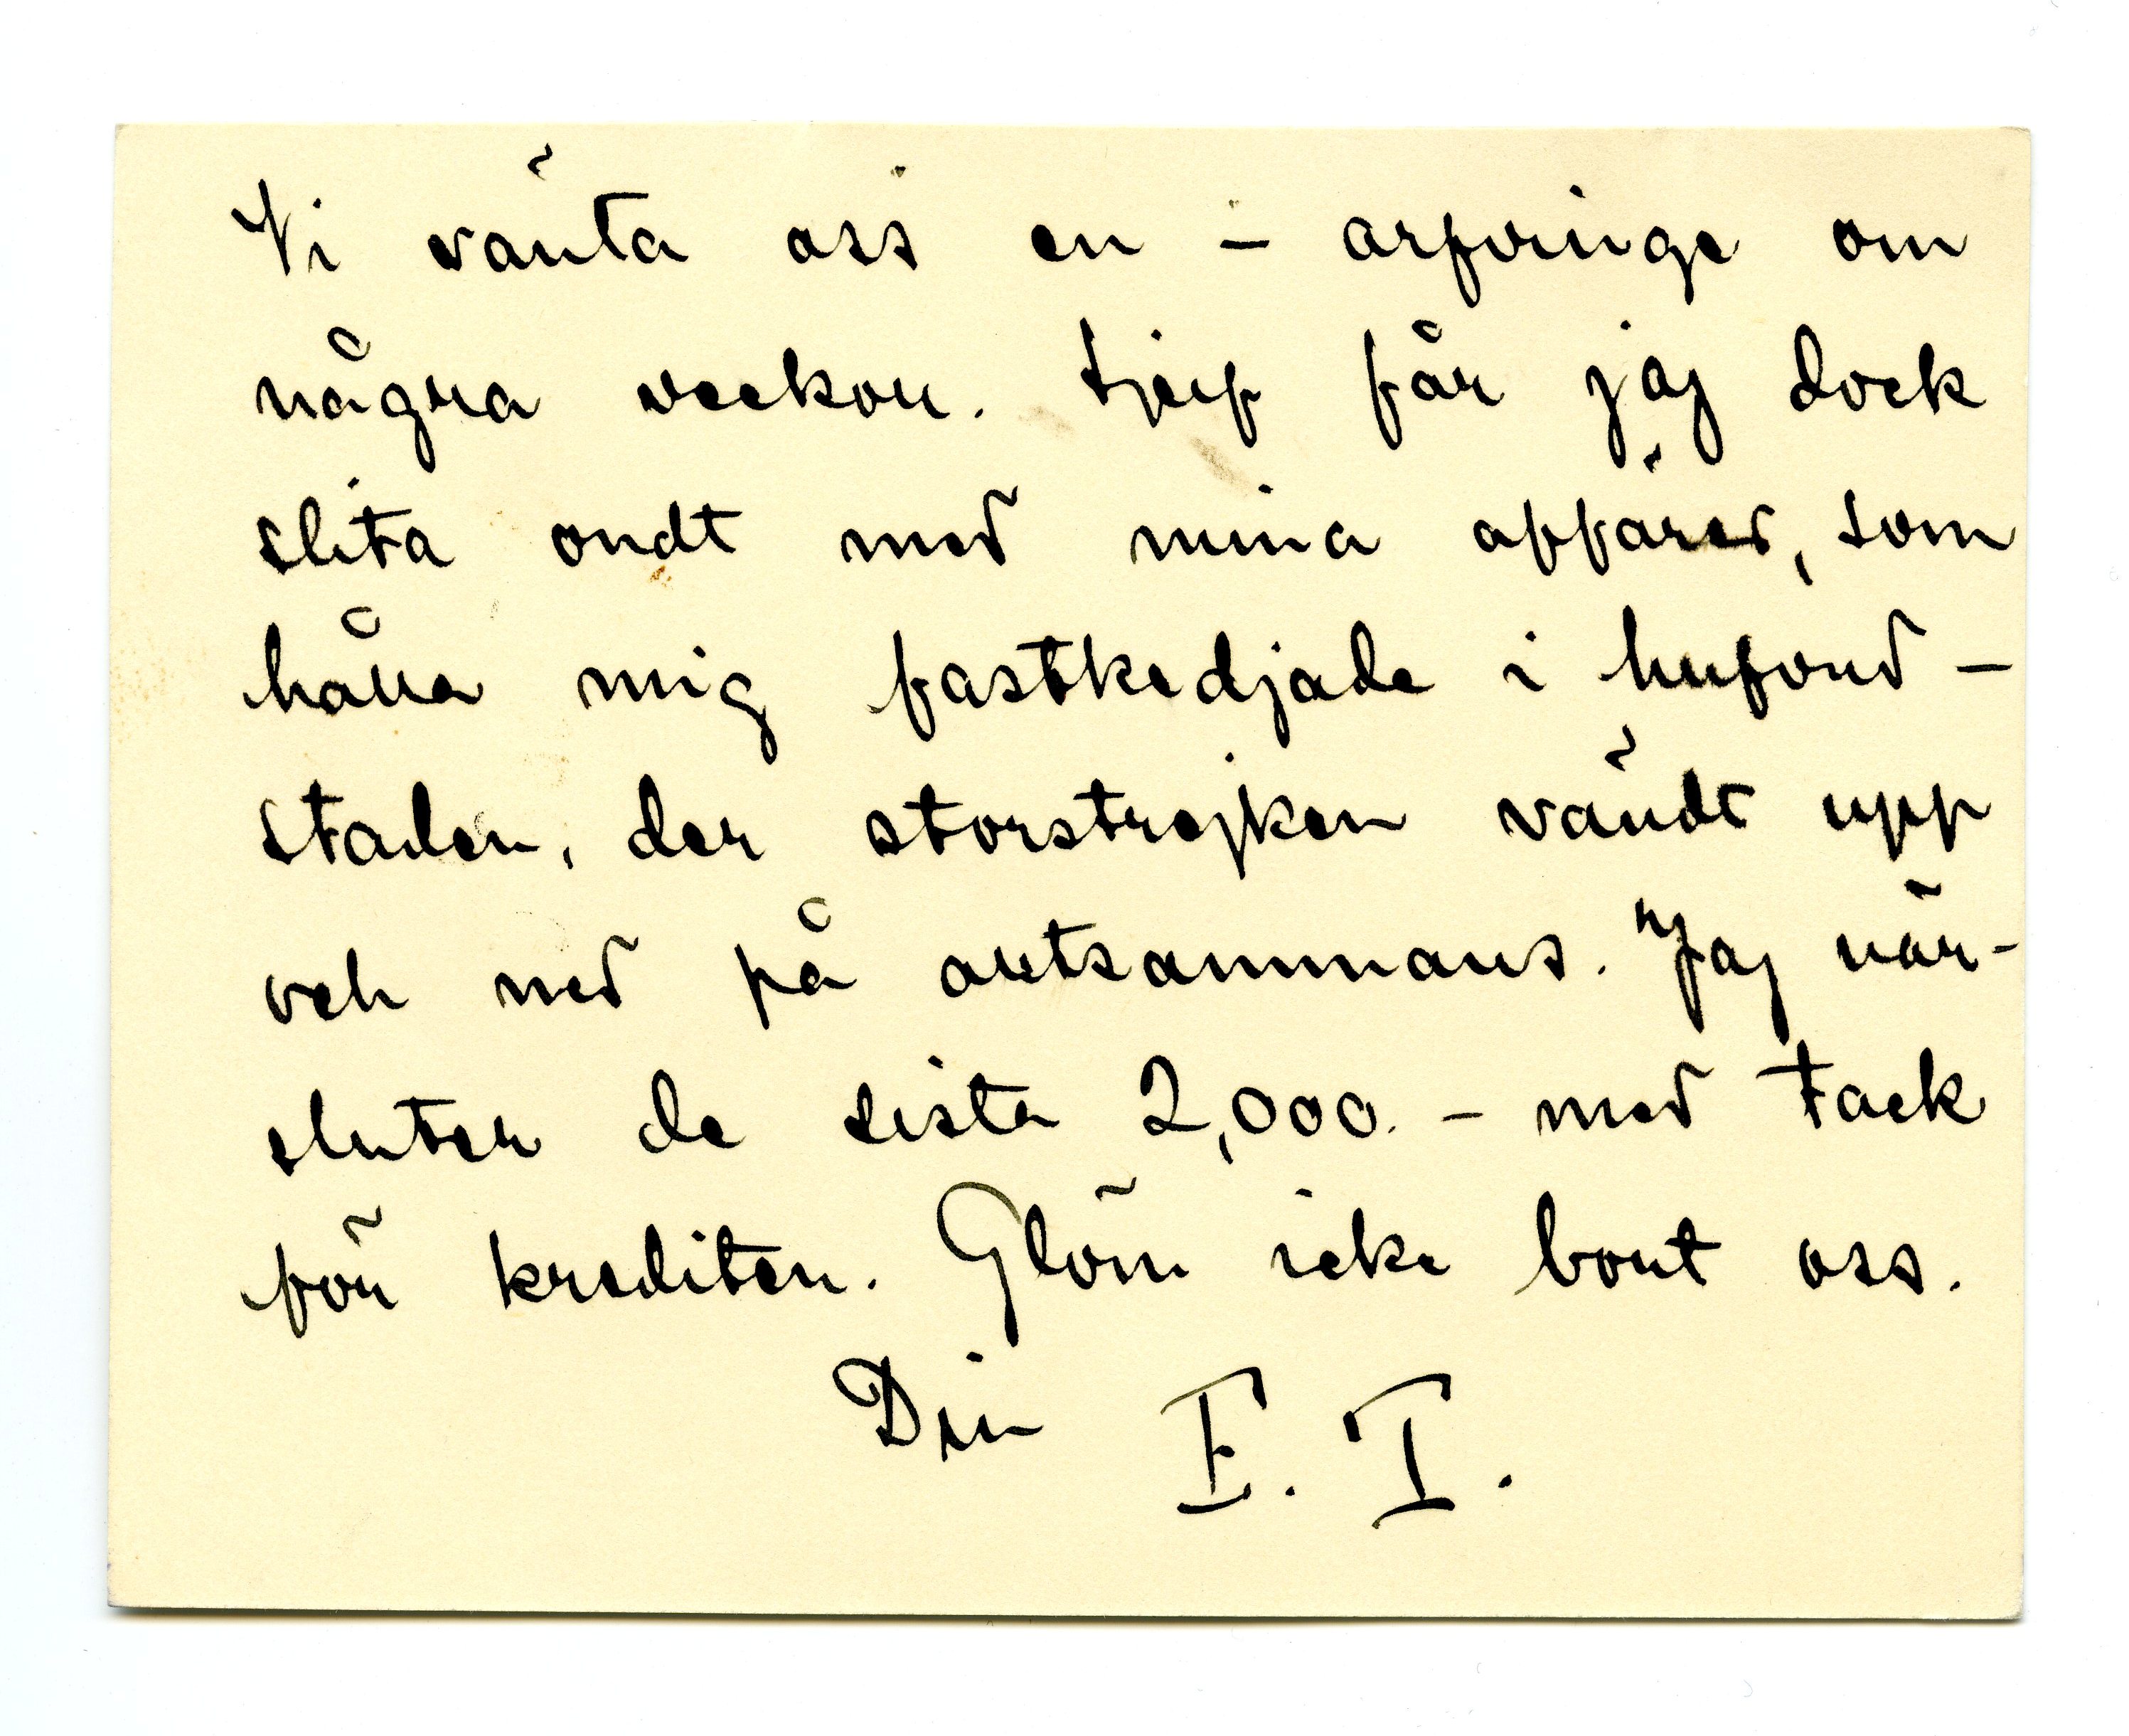 Vi vänta oss en – arfvinge om
några veckor. Sjelf får jag dock
slita ondt med mina affärer, som
hålla mig fastkedjade i hufvud-
staden, der storstrejken vändt upp
och ned på alltsammans. Jag när-
sluter de sista 2,000. – med tack
för krediten. Glöm icke bort oss.
Din E. T.